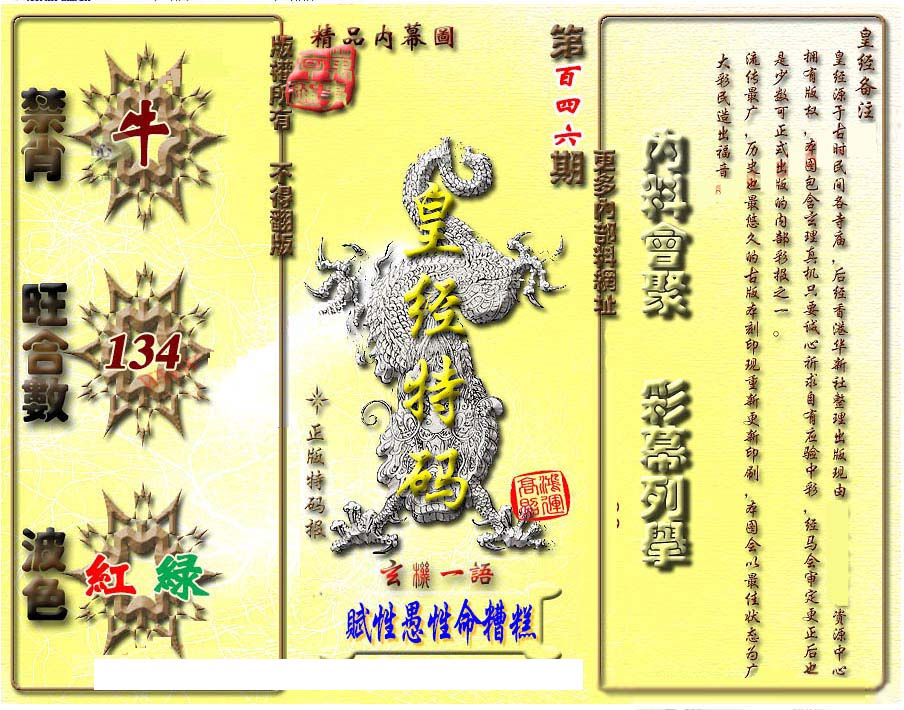 禁肖
牛
旺合數
134
波色
紅 綠
版權所有 不得翻版
精品内幕圖
第百四六期
皇经特码
正版特码报
鴻運高照
玄機一語
賦性愚性命糟糕
更多内部料網址
内料會聚 彩幕列舉
皇经备注
皇经源于古时民间各寺庙，后经香港华新社整理出版现由 资源中心
拥有版权，本图包含玄理真机只要诚心祈求自有应验中彩，经马会审定更正后也
是少数可正式出版的内部彩报之一。
流传最广，历史也最悠久的古版本刻印现重新更新印刷，本图会以最佳状态为广
大彩民造出福音